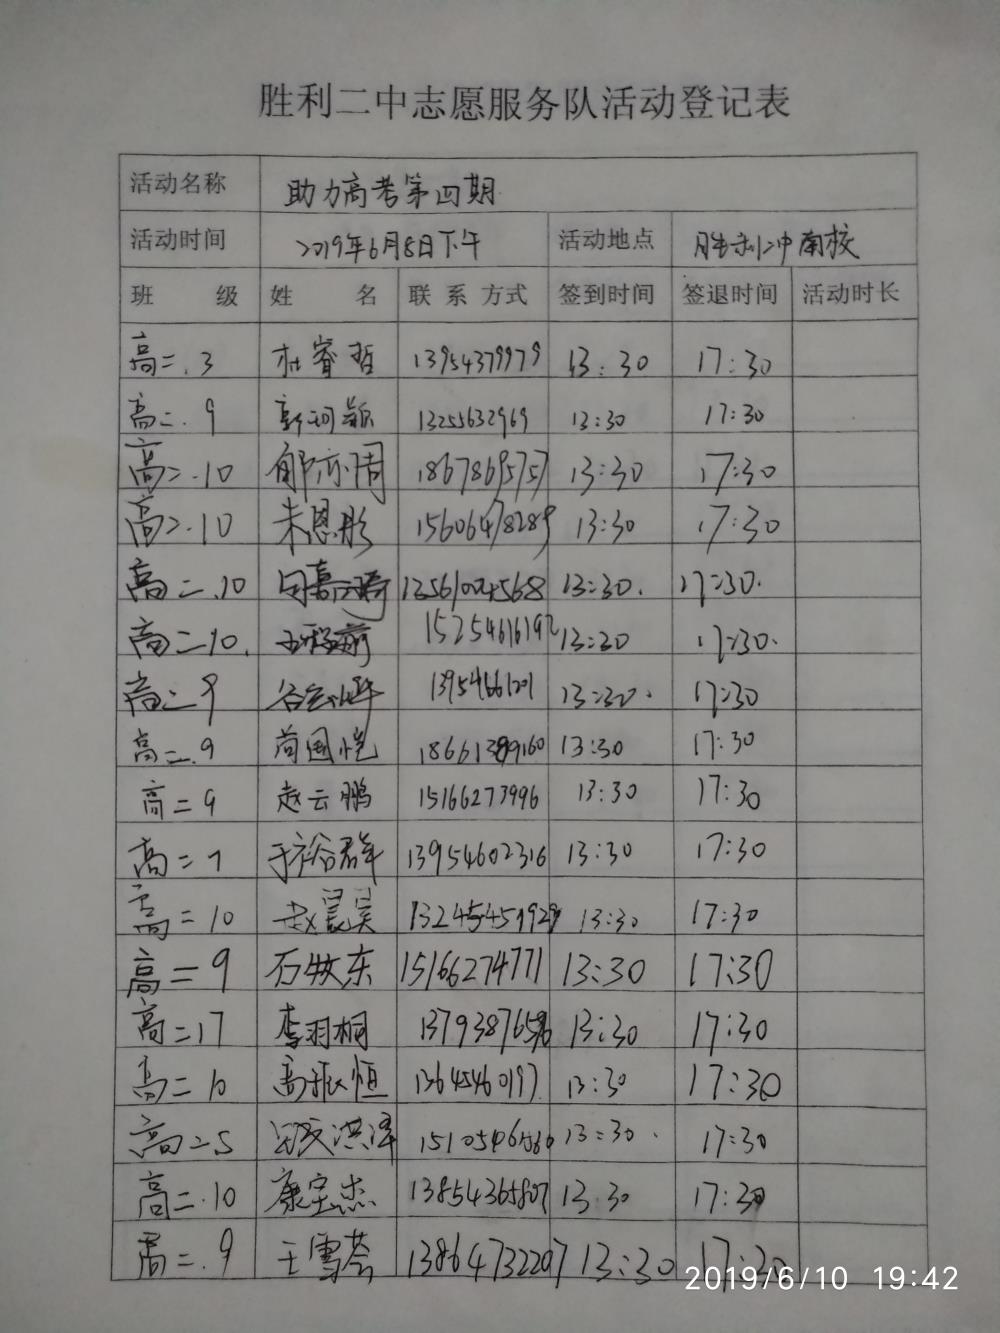 胜利二中志愿服务队活动登记表
活动名称 助力高考第四期
活动时间 2019年6月8日下午 活动地点 胜利二中南校
班 级 姓 名 联系方式 签到时间 签退时间 活动时长
高二.3 杜睿哲 13954379979 13:30 17:30
高二.9 郭珂颖 13255632969 13:30 17:30
高二.10 郇亦周 18678691575 13:30 17:30
高二.10 朱恩彤 15606478289 13:30 17:30
高二.10 13561004568 13:30. 17:30.
高二10. 15254616192 13:30 17:30.
高二9 13954661201 13:30. 17:30
高二.9 苟国恺 13:30 17:30
高二9 赵云鹏 15166273996 13:30 17:30
高二7 于裕群 13954602316 13:30 17:30
高二10 赵晨昊 13:30 17:30
高二9 石牧东 15166274771 13:30 17:30
高二17 李羽桐 13:30 17:30
高二10 高振恒 13645460197 13:30 17:30
高二5 洪泽 13:30. 17:30
高二.10 康宝杰 13854365807 13:30 17:30
高二.9 王雪荟 13864732207 13:30 17:30
2019/6/10 19:42